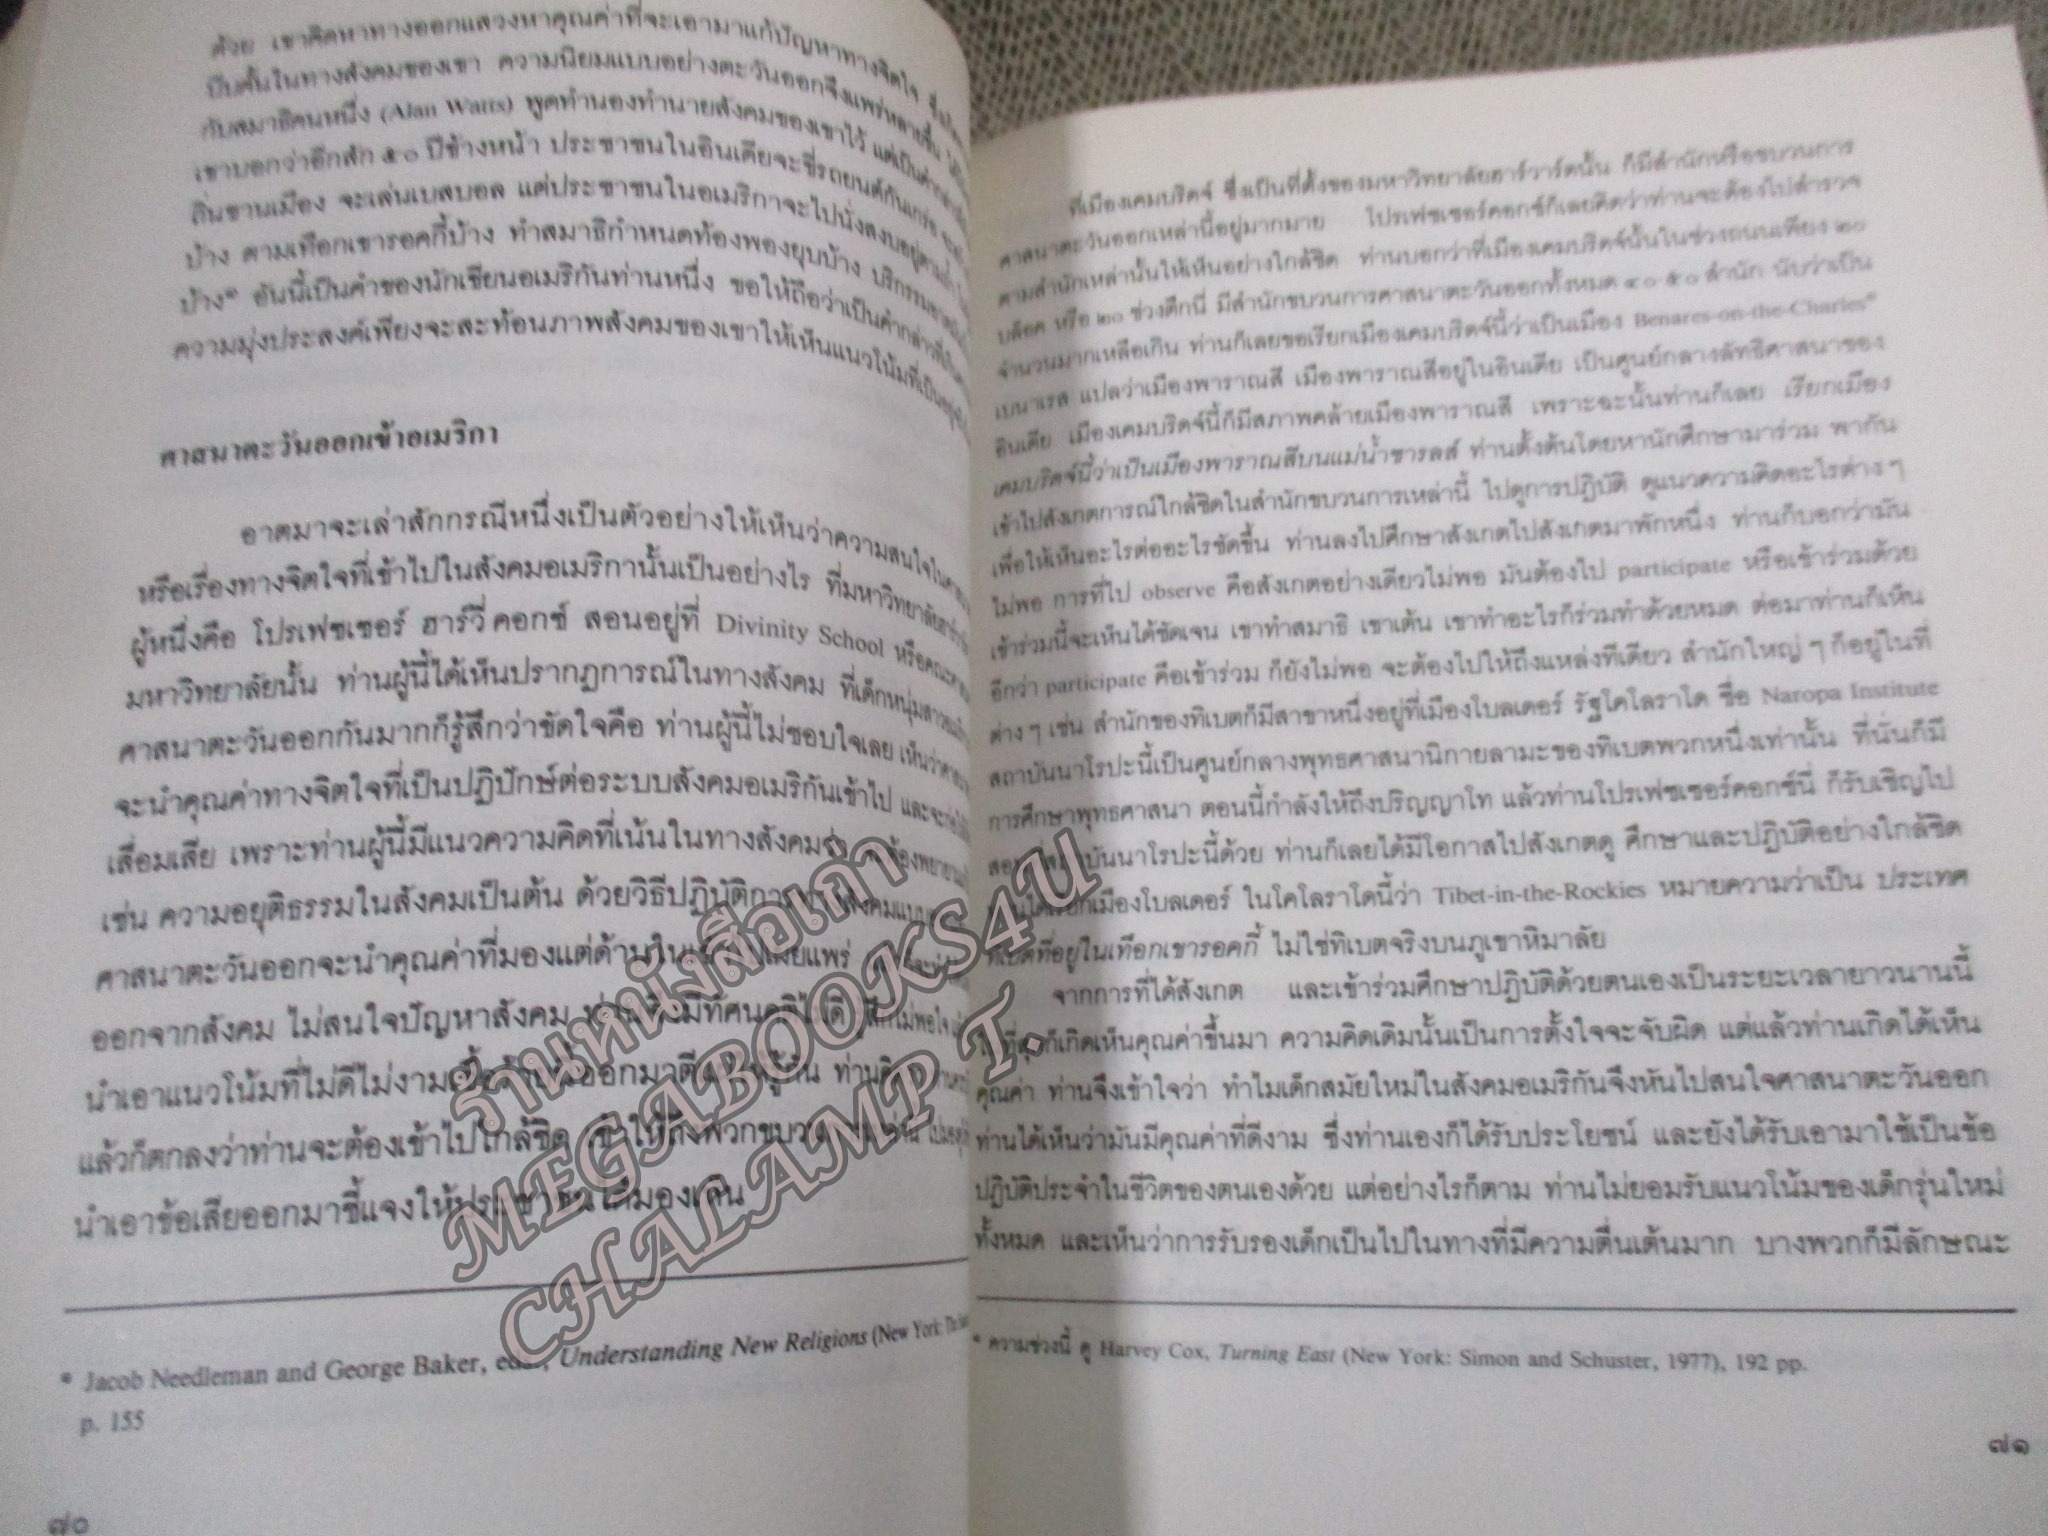 ด้วย เขาคิดหาทางออกแสวงหาคุณค่าที่จะเอามาแก้ปัญหาทางจิตใจ
ปั่นในทางสังคมของเขา ความนิยมแบบอย่างตะวันออกจึงแพร่หลายขึ้น
กับสมาธิคนหนึ่ง (Alan Watts) พูดทำนองทำนายสังคมของเขาไว้
เขาบอกว่าอีกสัก ๕๐ ปีข้างหน้า ประชาชนในอินเดียจะขี่รถยนต์กันเกร่อ
ถิ่นชานเมือง จะเล่นเบสบอล แต่ประชาชนในอเมริกาจะไปนั่งสงบอยู่ตามถ้ำ
บ้าง ตามเทือกเขารอคกี้บ้าง ทำสมาธิกำหนดท้องพองยุบบ้าง
บ้าง* อันนี้เป็นคำของนักเขียนอเมริกันท่านหนึ่ง ขอให้ถือว่าเป็นคำกล่าวที่
ความมุ่งประสงค์เพียงจะสะท้อนภาพสังคมของเขาให้เห็นแนวโน้มที่เป็นอยู่
ศาสนาตะวันออกเข้าอเมริกา
อาตมาจะเล่าสักกรณีหนึ่งเป็นตัวอย่างให้เห็นว่าความสนใจใน
หรือเรื่องทางจิตใจที่เข้าไปในสังคมอเมริกานั้นเป็นอย่างไร ที่มหาวิทยาลัยฮาร์วาร์ด
ผู้หนึ่งคือ โปรเฟซเซอร์ ฮาร์วี่ คอกซ์ สอนอยู่ที่ Divinity School หรือคณะ
มหาวิทยาลัยนั้น ท่านผู้นี้ได้เห็นปรากฏการณ์ในทางสังคม ที่เด็กหนุ่มสาว
ศาสนาตะวันออกกันมากก็รู้สึกว่าขัดใจคือ ท่านผู้นี้ไม่ชอบใจเลย เห็นว่า
จะนำคุณค่าทางจิตใจที่เป็นปฏิปักษ์ต่อระบบสังคมอเมริกันเข้าไป และจะ
เสื่อมเสีย เพราะท่านผู้นี้มีแนวความคิดที่เน้นในทางสังคมว่า จะต้องพยายาม
เช่น ความอยุติธรรมในสังคมเป็นต้น ด้วยวิธีปฏิบัติการทางสังคมแบบ
ศาสนาตะวันออกจะนำคุณค่าที่มองแต่ด้านใน เข้าไปเผยแพร่
ออกจากสังคม ไม่สนใจปัญหาสังคม ท่านจึงมีทัศนคติไม่ดี รู้สึกไม่พอใจ
นำเอาแนวโน้มที่ไม่ดีไม่งาม ออกมาตีแผ่ให้รู้กัน
แล้วก็ตกลงว่าท่านจะต้องเข้าไปใกล้ชิด เข้าให้ถึงพวกขบวนการ
นำเอาข้อเสียออกมาชี้แจงให้ประชาชนได้มองเห็น
* Jacob Needleman and George Baker, eds., Understanding New Religions (New York: The
p. 155
๗๐
ที่เมืองเคมบริดจ์ ซึ่งเป็นที่ตั้งของมหาวิทยาลัยฮาร์วาร์ดนั้น ก็มีสำนักหรือขบวนการ
ศาสนาตะวันออกเหล่านี้อยู่มากมาย โปรเฟซเซอร์คอกซ์ก็เลยคิดว่าท่านจะต้องไปสำรวจ
ตามสำนักเหล่านั้นให้เห็นอย่างใกล้ชิด ท่านบอกว่าที่เมืองเคมบริดจ์นั้นในช่วงถนนเพียง ๒๐
บล็อค หรือ ๒๐ ช่วงตึกนี่ มีสำนักขบวนการศาสนาตะวันออกทั้งหมด ๔๐-๕๐ สำนัก นับว่าเป็น
จำนวนมากเหลือเกิน ท่านก็เลยขอเรียกเมืองเคมบริดจ์นี้ว่าเป็นเมือง Benares-on-the-Charles*
เบนาเรส แปลว่าเมืองพาราณสี เมืองพาราณสีอยู่ในอินเดีย เป็นศูนย์กลางลัทธิศาสนาของ
อินเดีย เมืองเคมบริดจ์นี้ก็มีสภาพคล้ายเมืองพาราณสี เพราะฉะนั้นท่านก็เลย เรียกเมือง
เคมบริดจ์นี้ว่าเป็นเมืองพาราณสีบนแม่น้ำชารลส์ ท่านตั้งต้นโดยหานักศึกษามาร่วม พากัน
เข้าไปสังเกตการณ์ใกล้ชิดในสำนักขบวนการเหล่านี้ ไปดูการปฏิบัติ ดูแนวความคิดอะไรต่างๆ
เพื่อให้เห็นอะไรต่ออะไรชัดขึ้น ท่านลงไปศึกษาสังเกตไปสังเกตมาพักหนึ่ง ท่านก็บอกว่ามัน
ไม่พอ การที่ไป observe คือสังเกตอย่างเดียวไม่พอ มันต้องไป participate หรือเข้าร่วมด้วย
เข้าร่วมนี้จะเห็นได้ชัดเจน เขาทำสมาธิ เขาเต้น เขาทำอะไรก็ร่วมทำด้วยหมด ต่อมาท่านก็เห็น
อีกว่า participate คือเข้าร่วม ก็ยังไม่พอ จะต้องไปให้ถึงแหล่งทีเดียว สำนักใหญ่ ๆ ก็อยู่ในที่
ต่าง ๆ เช่น สำนักของทิเบตก็มีสาขาหนึ่งอยู่ที่เมืองโบลเดอร์ รัฐโคโลราโด ชื่อ Naropa Institute
สถาบันนาโรปะนี้เป็นศูนย์กลางพุทธศาสนานิกายลามะของทิเบตพวกหนึ่งเท่านั้น ที่นั่นก็มี
การศึกษาพุทธศาสนา ตอนนี้กำลังให้ถึงปริญญาโท แล้วท่านโปรเฟซเซอร์คอกซ์นี่ ก็รับเชิญไป
สอนในสถาบันนาโรปะนี้ด้วย ท่านก็เลยได้มีโอกาสไปสังเกตดู ศึกษาและปฏิบัติอย่างใกล้ชิด
ท่านได้เรียกเมืองโบลเดอร์ ในโคโลราโดนี้ว่า Tibet-in-the-Rockies หมายความว่าเป็น ประเทศ
ทิเบตที่อยู่ในเทือกเขารอคกี้ ไม่ใช่ทิเบตจริงบนภูเขาหิมาลัย
จากการที่ได้สังเกต และเข้าร่วมศึกษาปฏิบัติด้วยตนเองเป็นระยะเวลายาวนานนี้
ในที่สุดก็เกิดเห็นคุณค่าขึ้นมา ความคิดเดิมนั้นเป็นการตั้งใจจะจับผิด แต่แล้วท่านเกิดได้เห็น
คุณค่า ท่านจึงเข้าใจว่า ทำไมเด็กสมัยใหม่ในสังคมอเมริกันจึงหันไปสนใจศาสนาตะวันออก
ท่านได้เห็นว่ามันมีคุณค่าที่ดีงาม ซึ่งท่านเองก็ได้รับประโยชน์ และยังได้รับเอามาใช้เป็นข้อ
ปฏิบัติประจำในชีวิตของตนเองด้วย แต่อย่างไรก็ตาม ท่านไม่ยอมรับแนวโน้มของเด็กรุ่นใหม่
ทั้งหมด และเห็นว่าการรับรองเด็กเป็นไปในทางที่มีความตื่นเต้นมาก บางพวกก็มีลักษณะ
* ความช่วงนี้ ดู Harvey Cox, Turning East (New York: Simon and Schuster, 1977), 192 pp.
๗๑
ร้านหนังสือเก่า
MEGABOOKS4U
CHALAMP T.